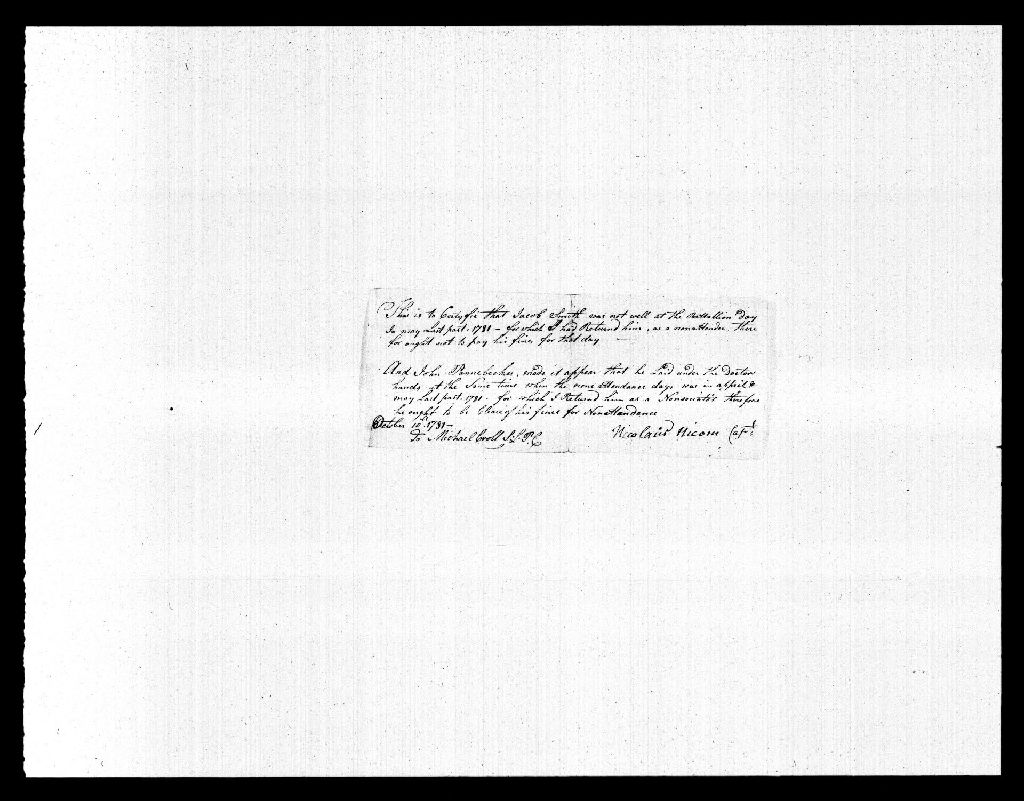 This is to Certifie that Jacob Smith was not well at the Battallion Day
In may Last past. 1781 – for which I had Returnd him, as a nonattender. There
for ought not to pay his fines for that day —
And John Pannebecker, made it appear that he Laid under the Doctors
hands at the Same time when the none attendance days was in april &
may Last past. 1781. for which I Returnd him as a therefore
he ought to be Clear of his fines for Nonattendance
October 10th 1781 –
To Michael Croll S. L. P. C.
Nicolaus Nicom Capt.